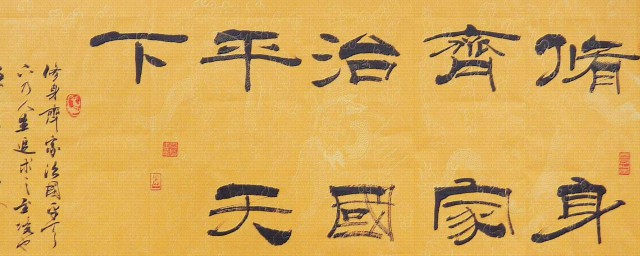 脩身
齊家
治國
平天
下
修身齊家治國平
乃人生追求之